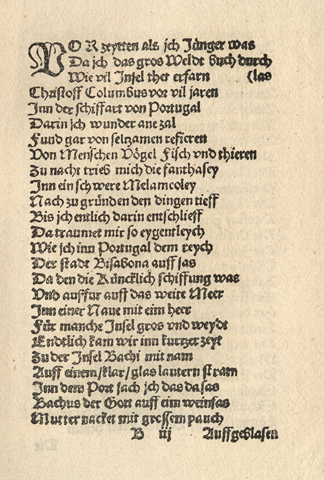 VOR zeytten als jch Jünger was
Da jch das gros Weldt buch durch
Wie vil Insel thet erfarn (las
Christoff Columbus vor vil jaren
Inn der schiffart von Portugal
Darin jch wunder ane zal
Fund gar von seltzamen refieren
Von Menschen Vögel Fisch vnd thieren
Zu nacht trieb mich die fanthasey
Inn ein schwere Melamcoley
Nach zu gründen den dingen tieff
Bis jch entlich darin entschlieff
Da traumet mir so eygentleych
Wie jch inn Portugal dem reych
Der stadt Bisabona auff sas
Da den die Küncklich schiffung was
Vnd auffur auff das weite Meer
Inn einer Naue mit eim heer
Für manche Insel gros vnd weydt
Endtlich kam wir inn kurtzer zeyt
Zu der Insel Bachi mit nam
Auff einem/klar/glas lautern stram
Inn dem Port sach jch das da sas
Bachus der Gott auff eim weinfas
Mutter nacket mit grossem pauch
B iij Auffgeblasen